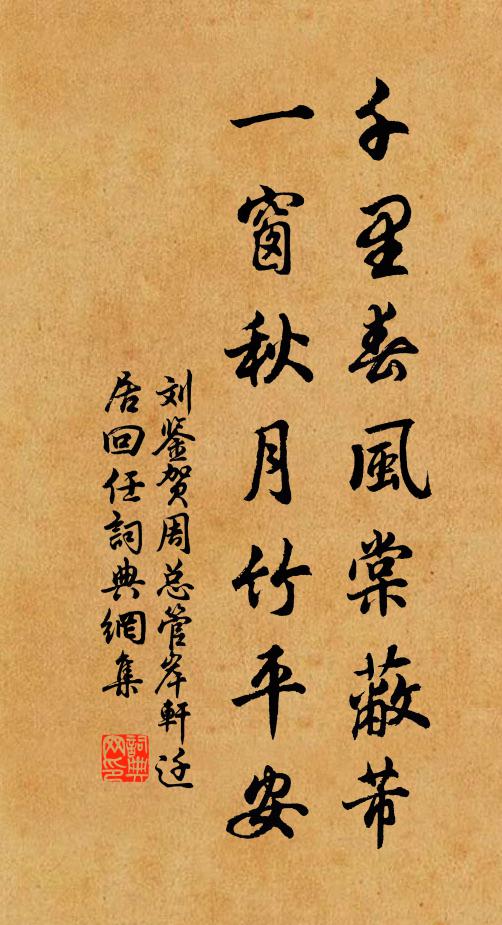 千里春風棠蔽芾
一窗秋月竹平安
刘鉴贺周总管岸軒迁
居回任詞典網集
詞典网印